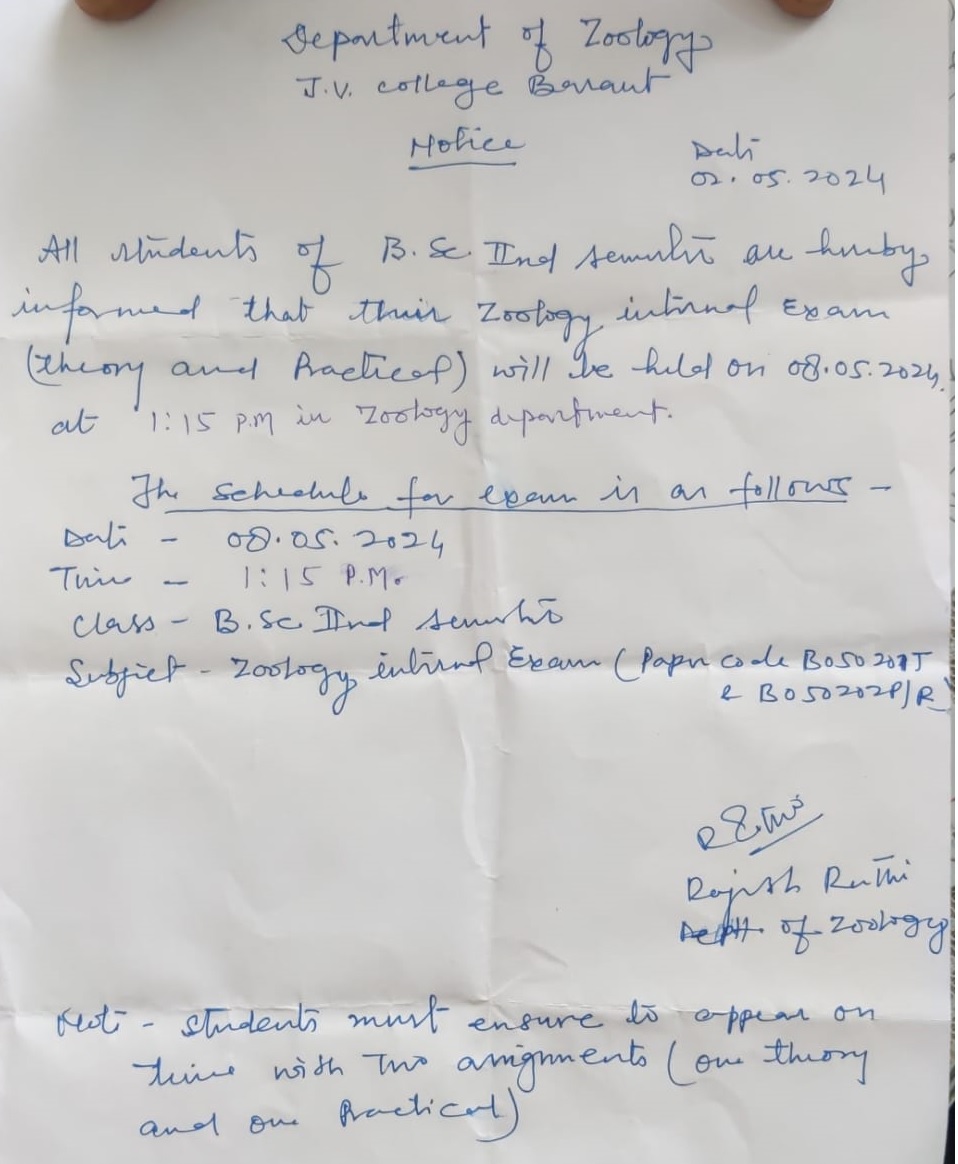 Department of Zoology
J.V. college Baraut
Notice
Date
02.05.2024
All students of B.Sc. IInd semester are hereby
informed that their Zoology internal Exam
(theory and Practical) will be held on 08.05.2024,
at 1:15 P.M in Zoology department.
The schedule for exam is as follows -
Date - 08.05.2024
Time - 1:15 P.M.
Class - B.Sc. IInd semester
Subject - Zoology internal Exam (Paper code B050201T
& B050202P/R)
Rajesh
Deptt. of Zoology
Note - students must ensure to appear on
time with Two assignments (one theory
and one Practical)